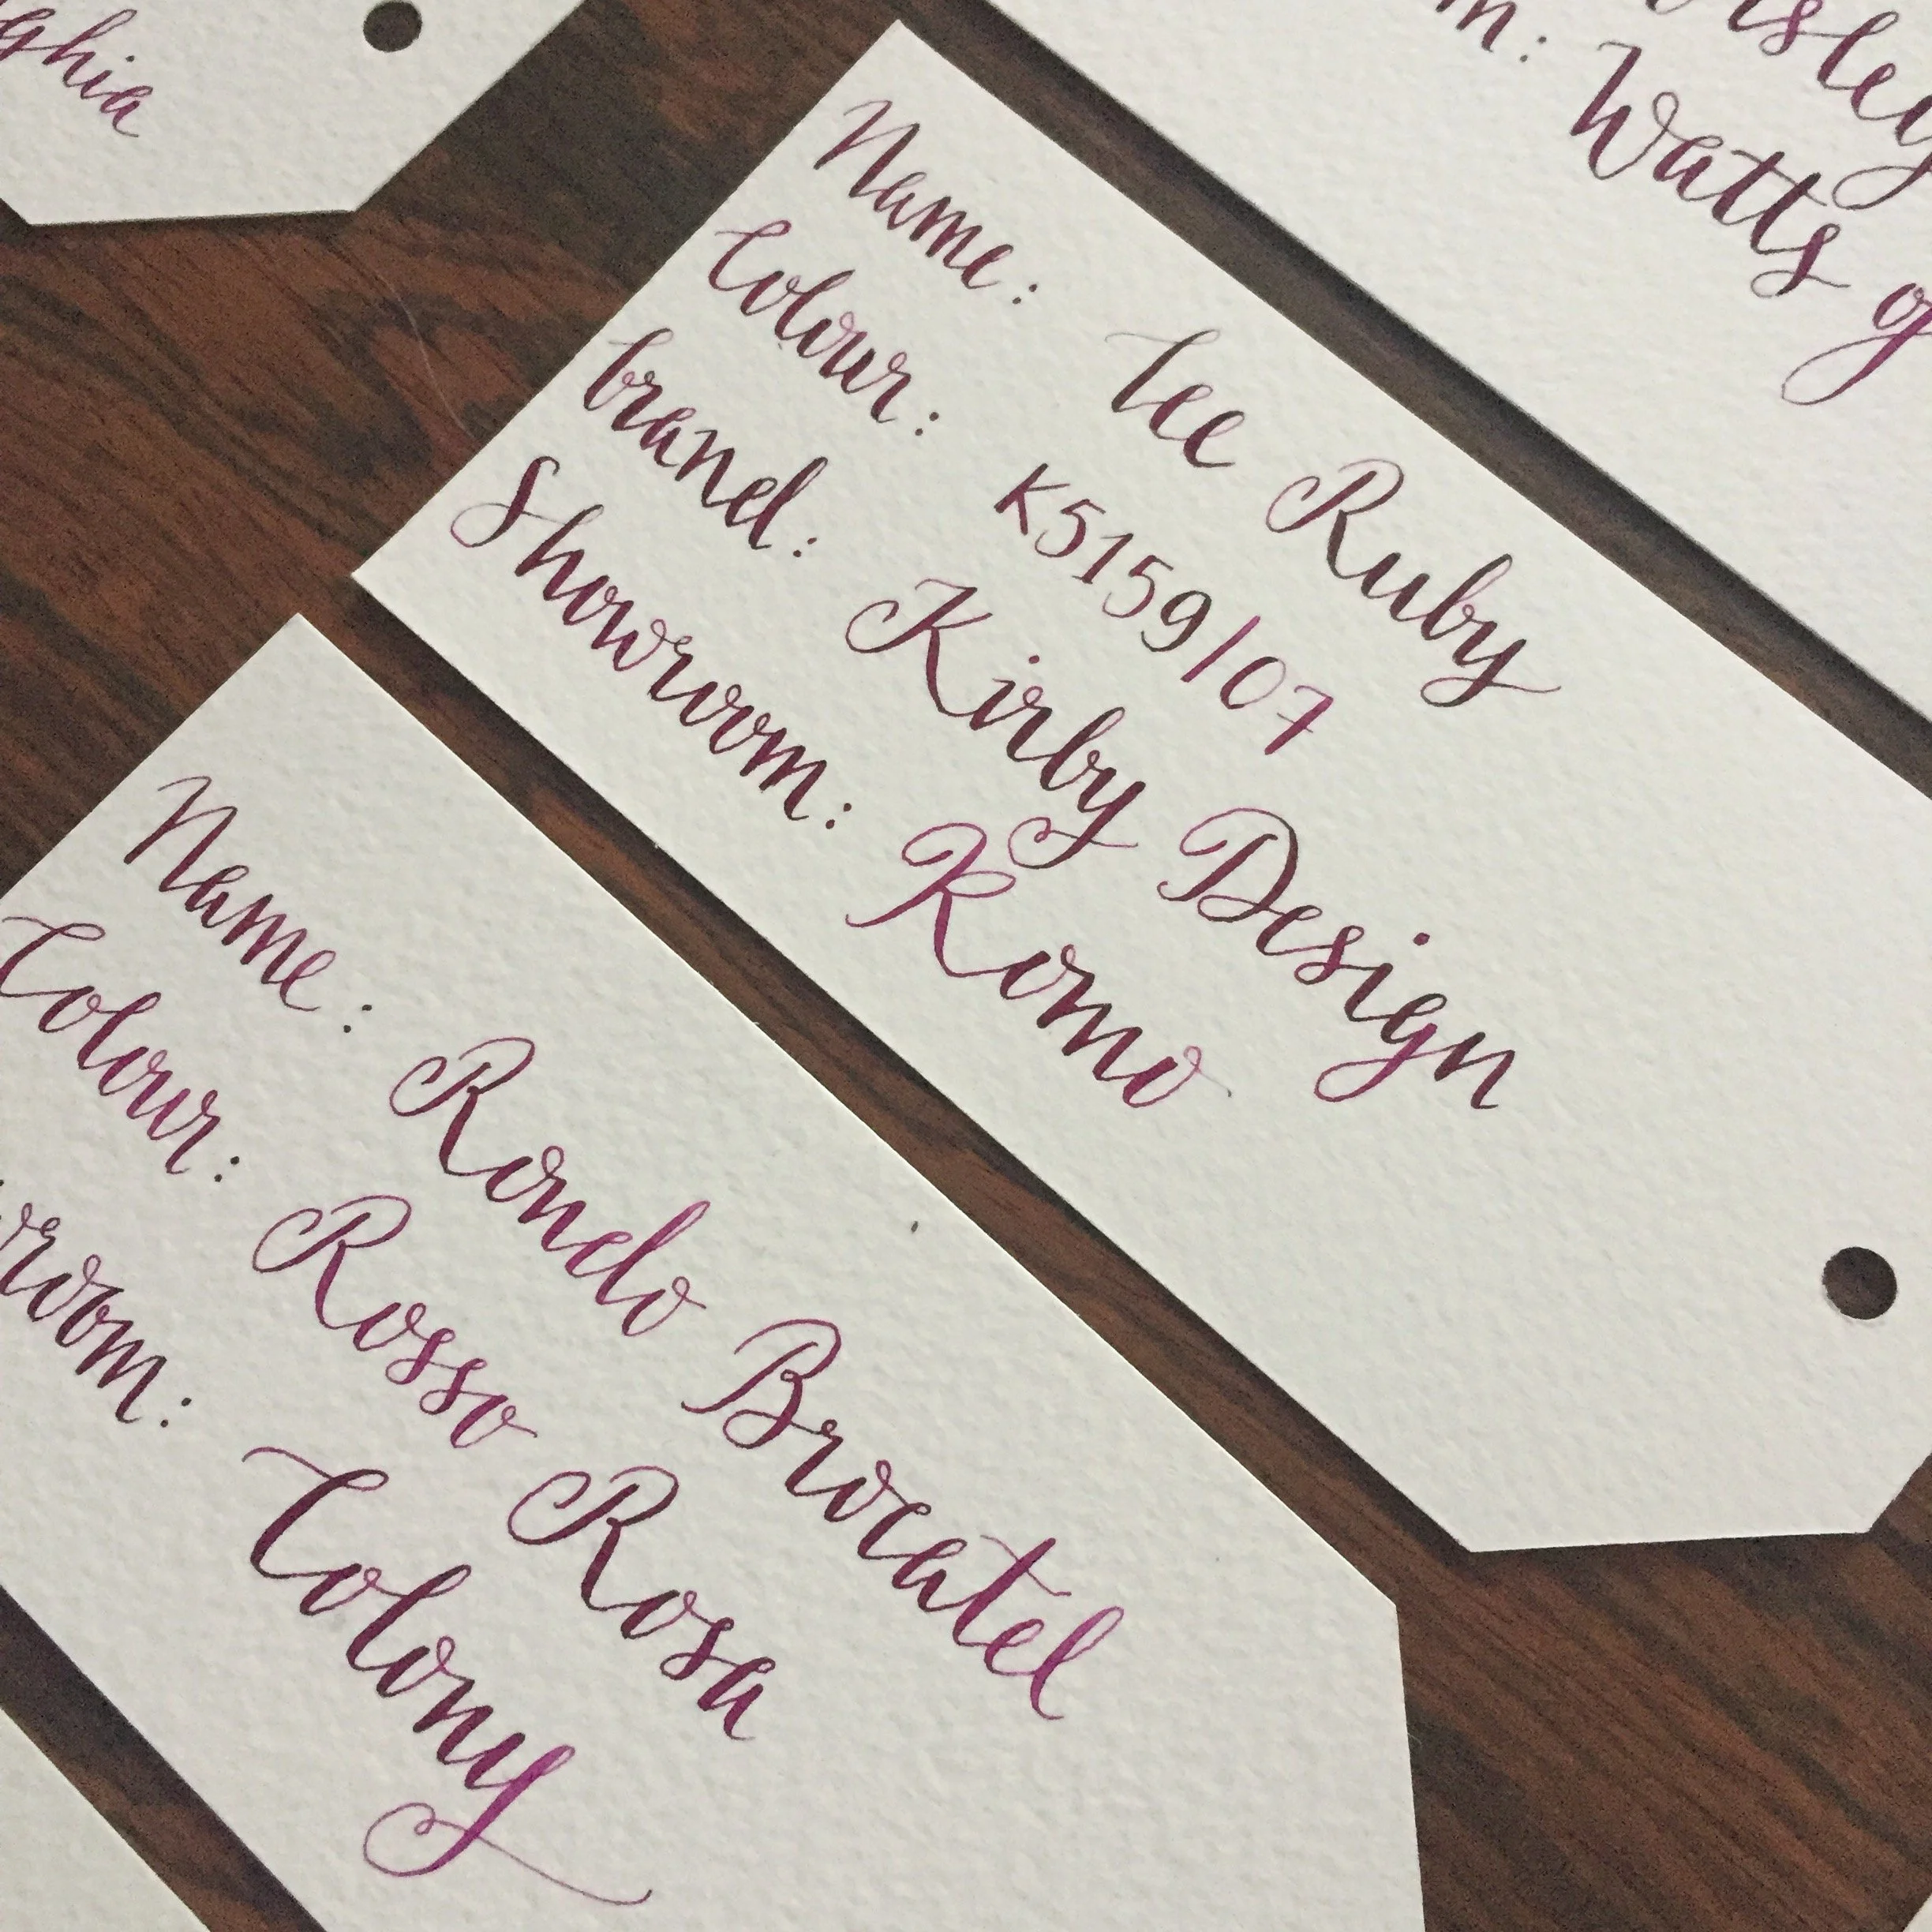 ghia
rsley
m: Watts of
Name: Ice Ruby
Colour: K5159/07
brand: Kirby Design
Showroom: Romo
Name: Rondo Brocatel
Colour: Rosso Rosa
wroom: Colony